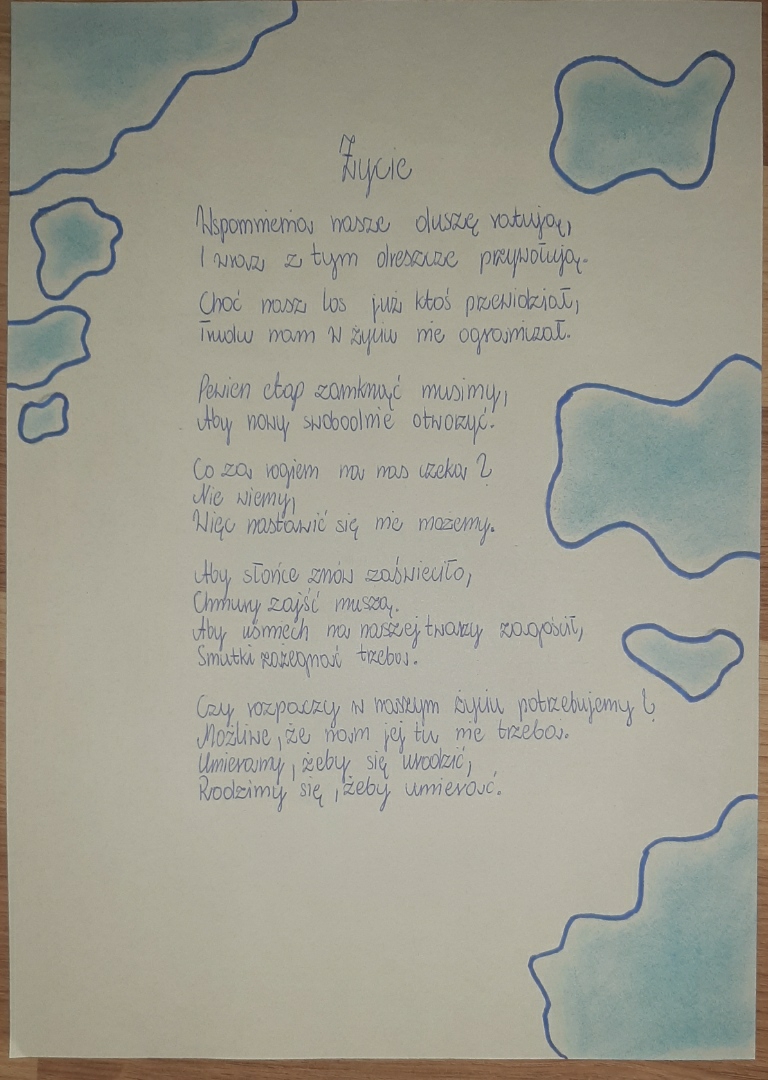 Życie
Wspomnienia nasze duszę ratują,
I wraz z tym dreszcze przywołują.
Choć nasz los już ktoś przewidział,
Trudu nam w życiu nie ograniczał.
Pewien etap zamknąć musimy,
Aby nowy swobodnie otworzyć.
Co za rogiem na nas czeka?
Nie wiemy,
Więc nastawić się nie możemy.
Aby słońce znów zaświeciło,
Chmury zajść muszą.
Aby uśmiech na naszej twarzy zagościł,
Smutki zażegnać trzeba.
Czy rozpaczy w naszym życiu potrzebujemy?
Możliwe, że nam jej tu nie trzeba.
Umieramy, żeby się urodzić,
Rodzimy się, żeby umierać.